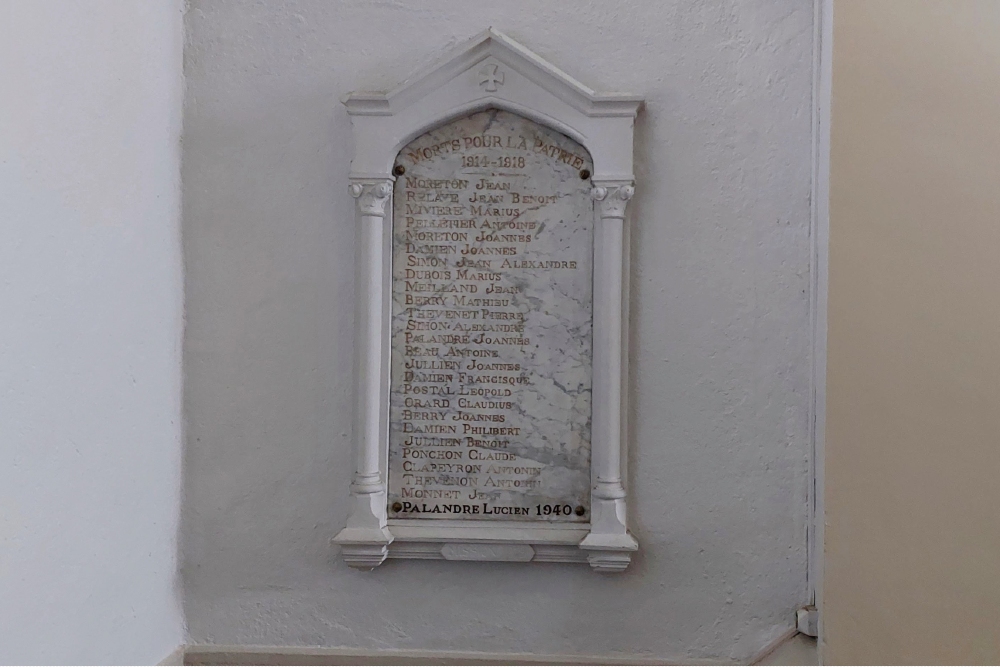 MORTS POUR LA PATRIE
1914-1918
MORETON JEAN
RELAVE JEAN BENOIT
MIVIERE MARIUS
PELLETIER ANTOINE
MORETON JOANNES
DAMIEN JOANNES
SIMON JEAN ALEXANDRE
DUBOIS MARIUS
MEILLAND JEAN
BERRY MATHIEU
THEVENET PIERRE
SIMON ALEXANDRE
PALANDRE JOANNES
BEAU ANTOINE
JULLIEN JOANNES
DAMIEN FRANCISQUE
POSTAL LEOPOLD
GRARD CLAUDIUS
BERRY JOANNES
DAMIEN PHILIBERT
JULLIEN BENOIT
PONCHON CLAUDE
CLAPEYRON ANTONIN
THEVENON ANTONIN
MONNET
PALANDRE LUCIEN 1940